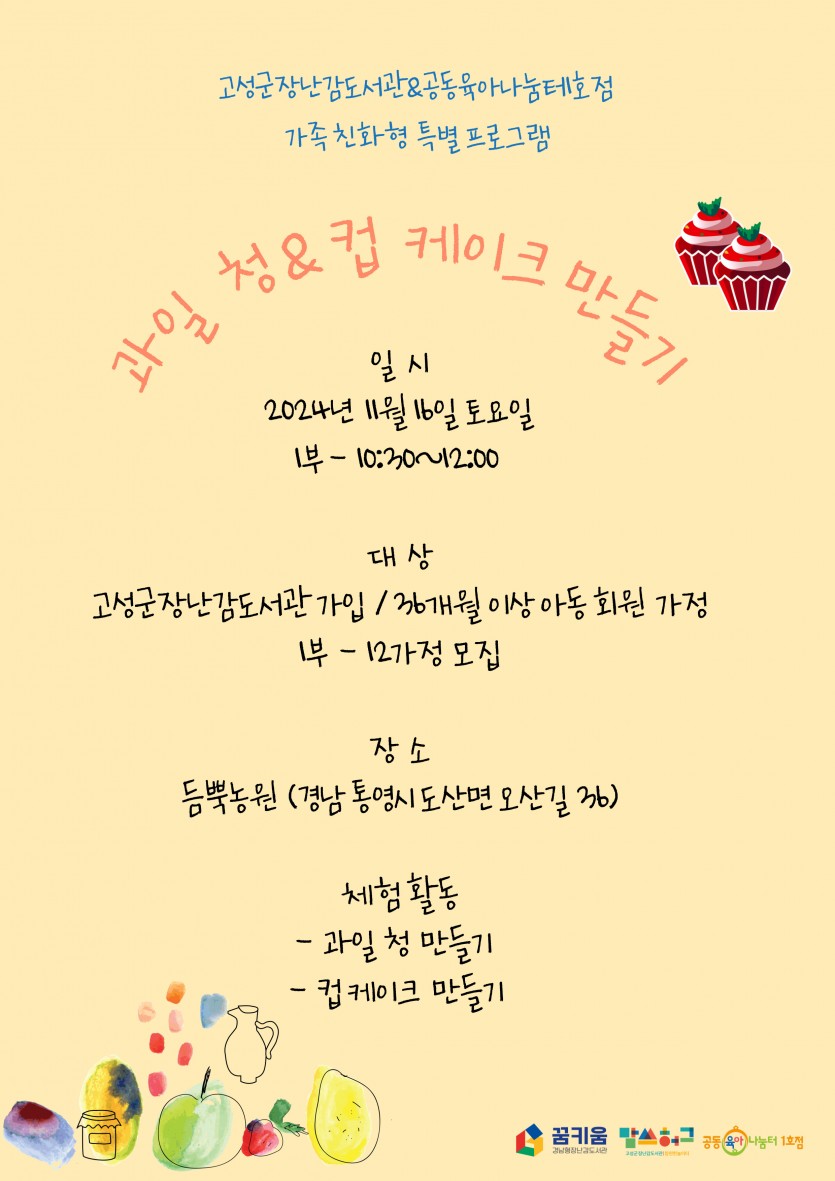 고성군장난감도서관&공동육아나눔터1호점
가족 친화형 특별 프로그램
과일 청&컵 케이크 만들기
일 시
2024년 11월 16일 토요일
1부 - 10:30~12:00
대 상
고성군장난감도서관 가입 / 36개월 이상 아동 회원 가정
1부 - 12가정 모집
장 소
듬뿍농원 (경남 통영시 도산면 오산길 36)
체험 활동
- 과일 청 만들기
- 컵 케이크 만들기
꿈키움
경남형장난감도서관
맘쓰허그
공동육아나눔터 1호점